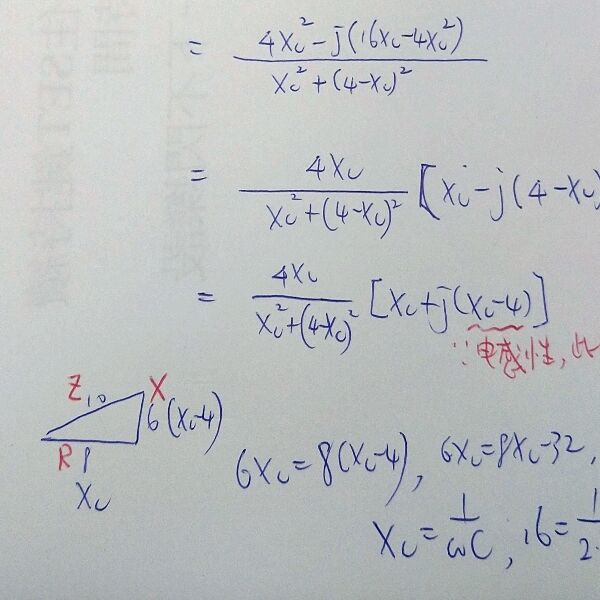 = (4Xc² - j(16Xc - 4Xc²)) / (Xc² + (4-Xc)²)
= 4Xc / (Xc² + (4-Xc)²) [Xc - j(4-Xc)
= 4Xc / (Xc² + (4-Xc)²) [Xc + j(Xc-4)]
∵电感性, 此
Z 10 X
6 (Xc-4)
R 8
Xc
6Xc = 8(Xc-4), 6Xc = 8Xc - 32,
Xc = 1/ωC, 16 = 1/2.